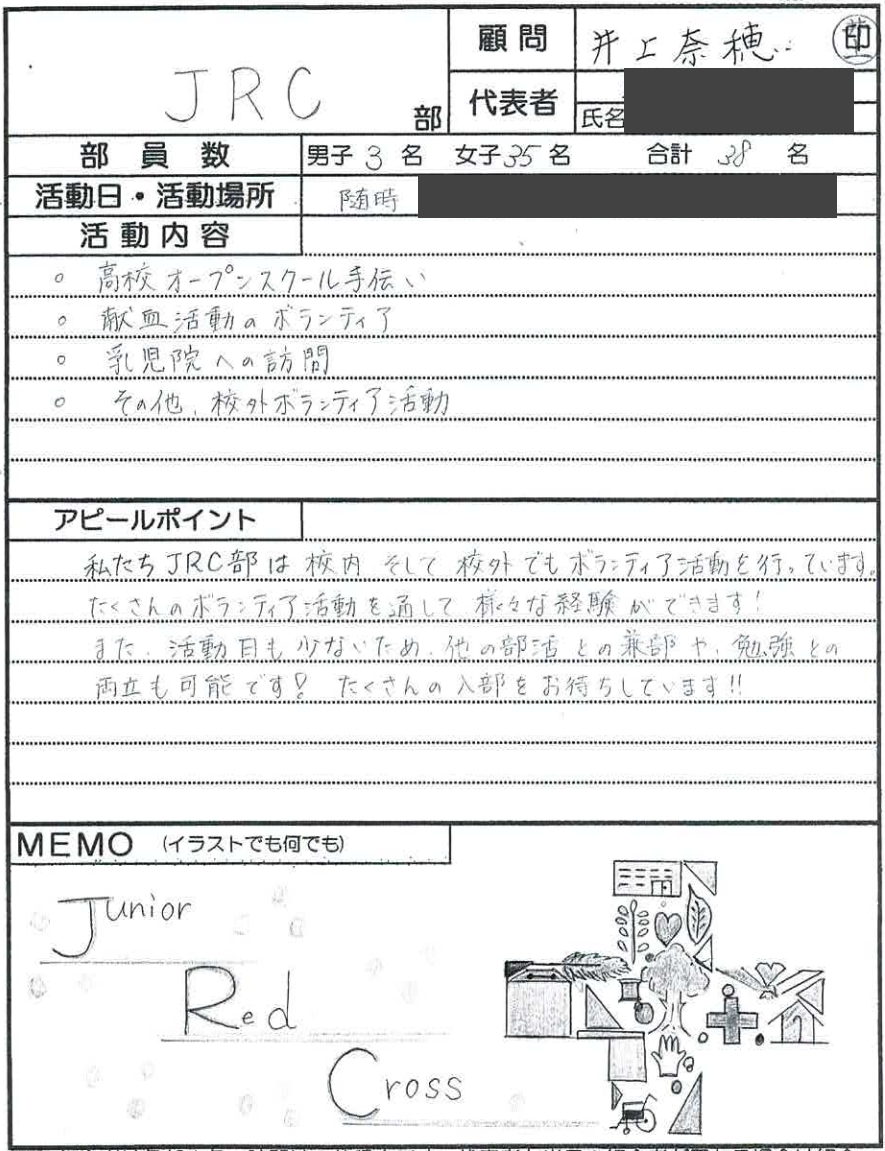 JRC 部
顧問 井上奈穂 印
代表者 氏名
部員数 男子 3 名 女子 35 名 合計 38 名
活動日・活動場所 随時
活動内容
。高校オープンスクール手伝い
。献血活動のボランティア
。乳児院への訪問
。その他、校外ボランティア活動
アピールポイント
私たちJRC部は校内そして校外でもボランティア活動を行っています。
たくさんのボランティア活動を通して様々な経験ができます!
また、活動日も少ないため、他の部活との兼部や、勉強との
両立も可能です! たくさんの入部をお待ちしています!!
MEMO (イラストでも何でも)
Junior
Red
Cross